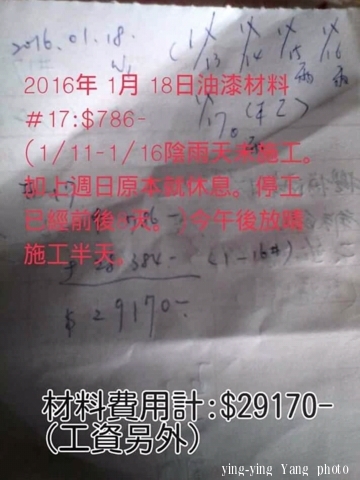 2016.01.18.
(1/13 1/14 1/15雨 1/16雨
1/17
2016年 1月 18日油漆材料
#17:$786-
(1/11-1/16陰雨天未施工。
加上週日原本就休息。停工
已經前後8天。)今午後放晴
施工半天。
786-
+ 28384- (1-16#)
$ 29170-
材料費用計:$29170-
(工資另外)
ying-ying Yang photo